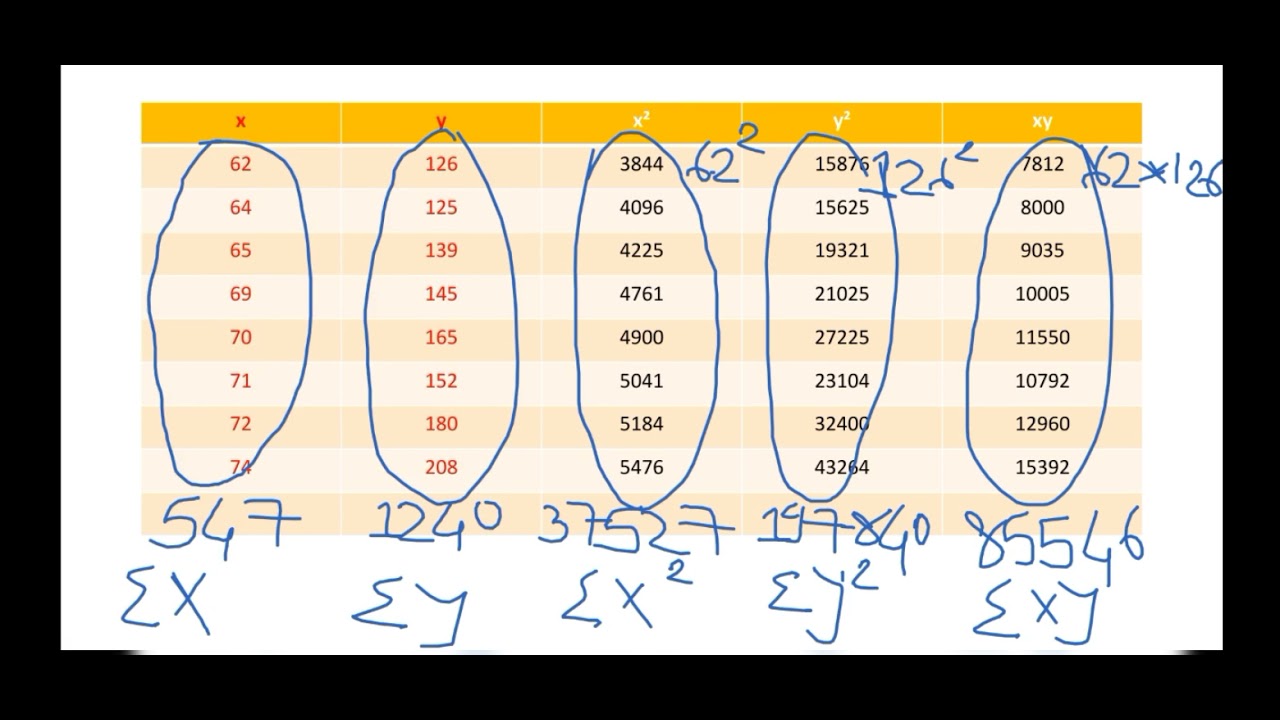 x y x² y² xy
62 126 3844 62² 15876 126² 7812 62×126
64 125 4096 15625 8000
65 139 4225 19321 9035
69 145 4761 21025 10005
70 165 4900 27225 11550
71 152 5041 23104 10792
72 180 5184 32400 12960
74 208 5476 43264 15392
547 1240 37527 197840 85546
Σx Σy Σx² Σy² Σxy